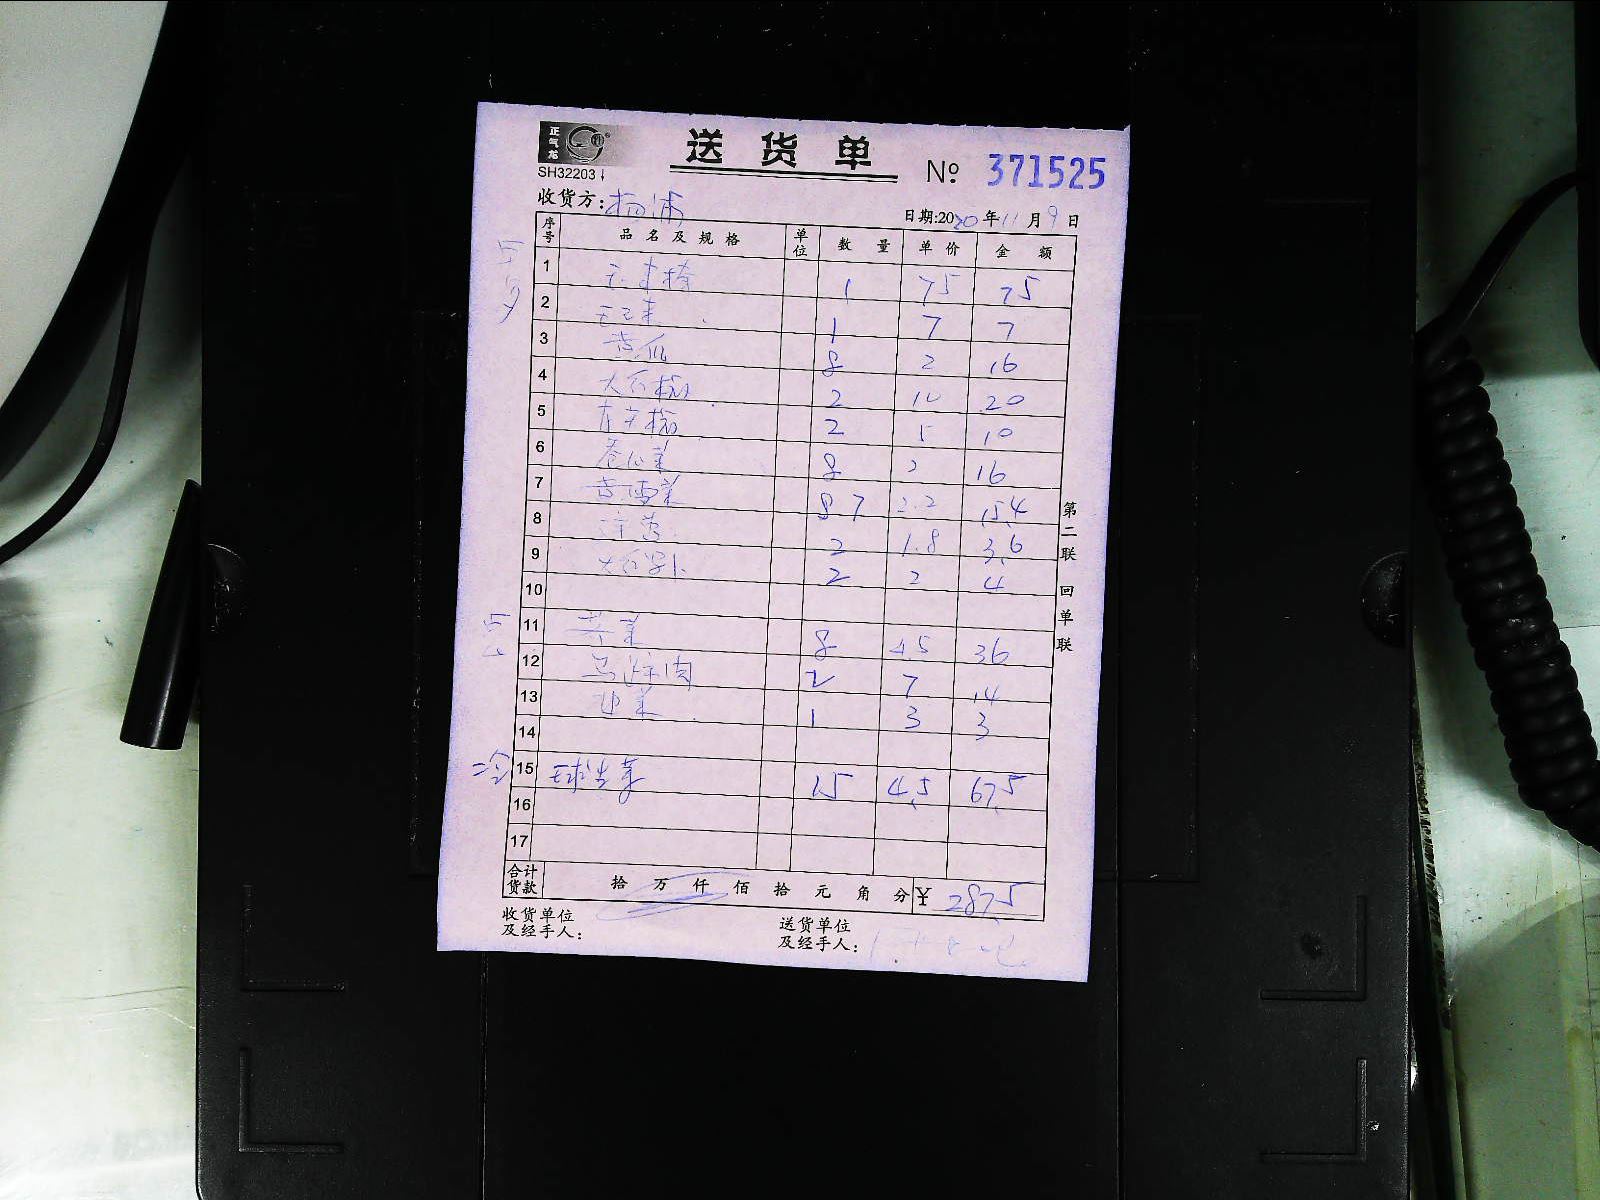 正气龙
送货单
SH32203
№ 371525
收货方: 杨浦
日期:2020年11月9日
序号 品名及规格 单位 数量 单价 金额
1 1 75 75
2 1 7 7
3 黄瓜 8 2 16
4 2 10 20
5 2 5 10
6 卷心菜 8 2 16
7 8.7 2.2 15.4
8 洋葱 2 1.8 3.6
9 大白萝卜 2 2 4
10
11 芹菜 8 4.5 36
12 2 7 14
13 1 3 3
14
15 球生菜 15 4.5 67.5
16
17
第二联 回单联
合计货款 拾 万 仟 佰 拾 元 角 分 ¥ 287.5
收货单位及经手人:
送货单位及经手人: